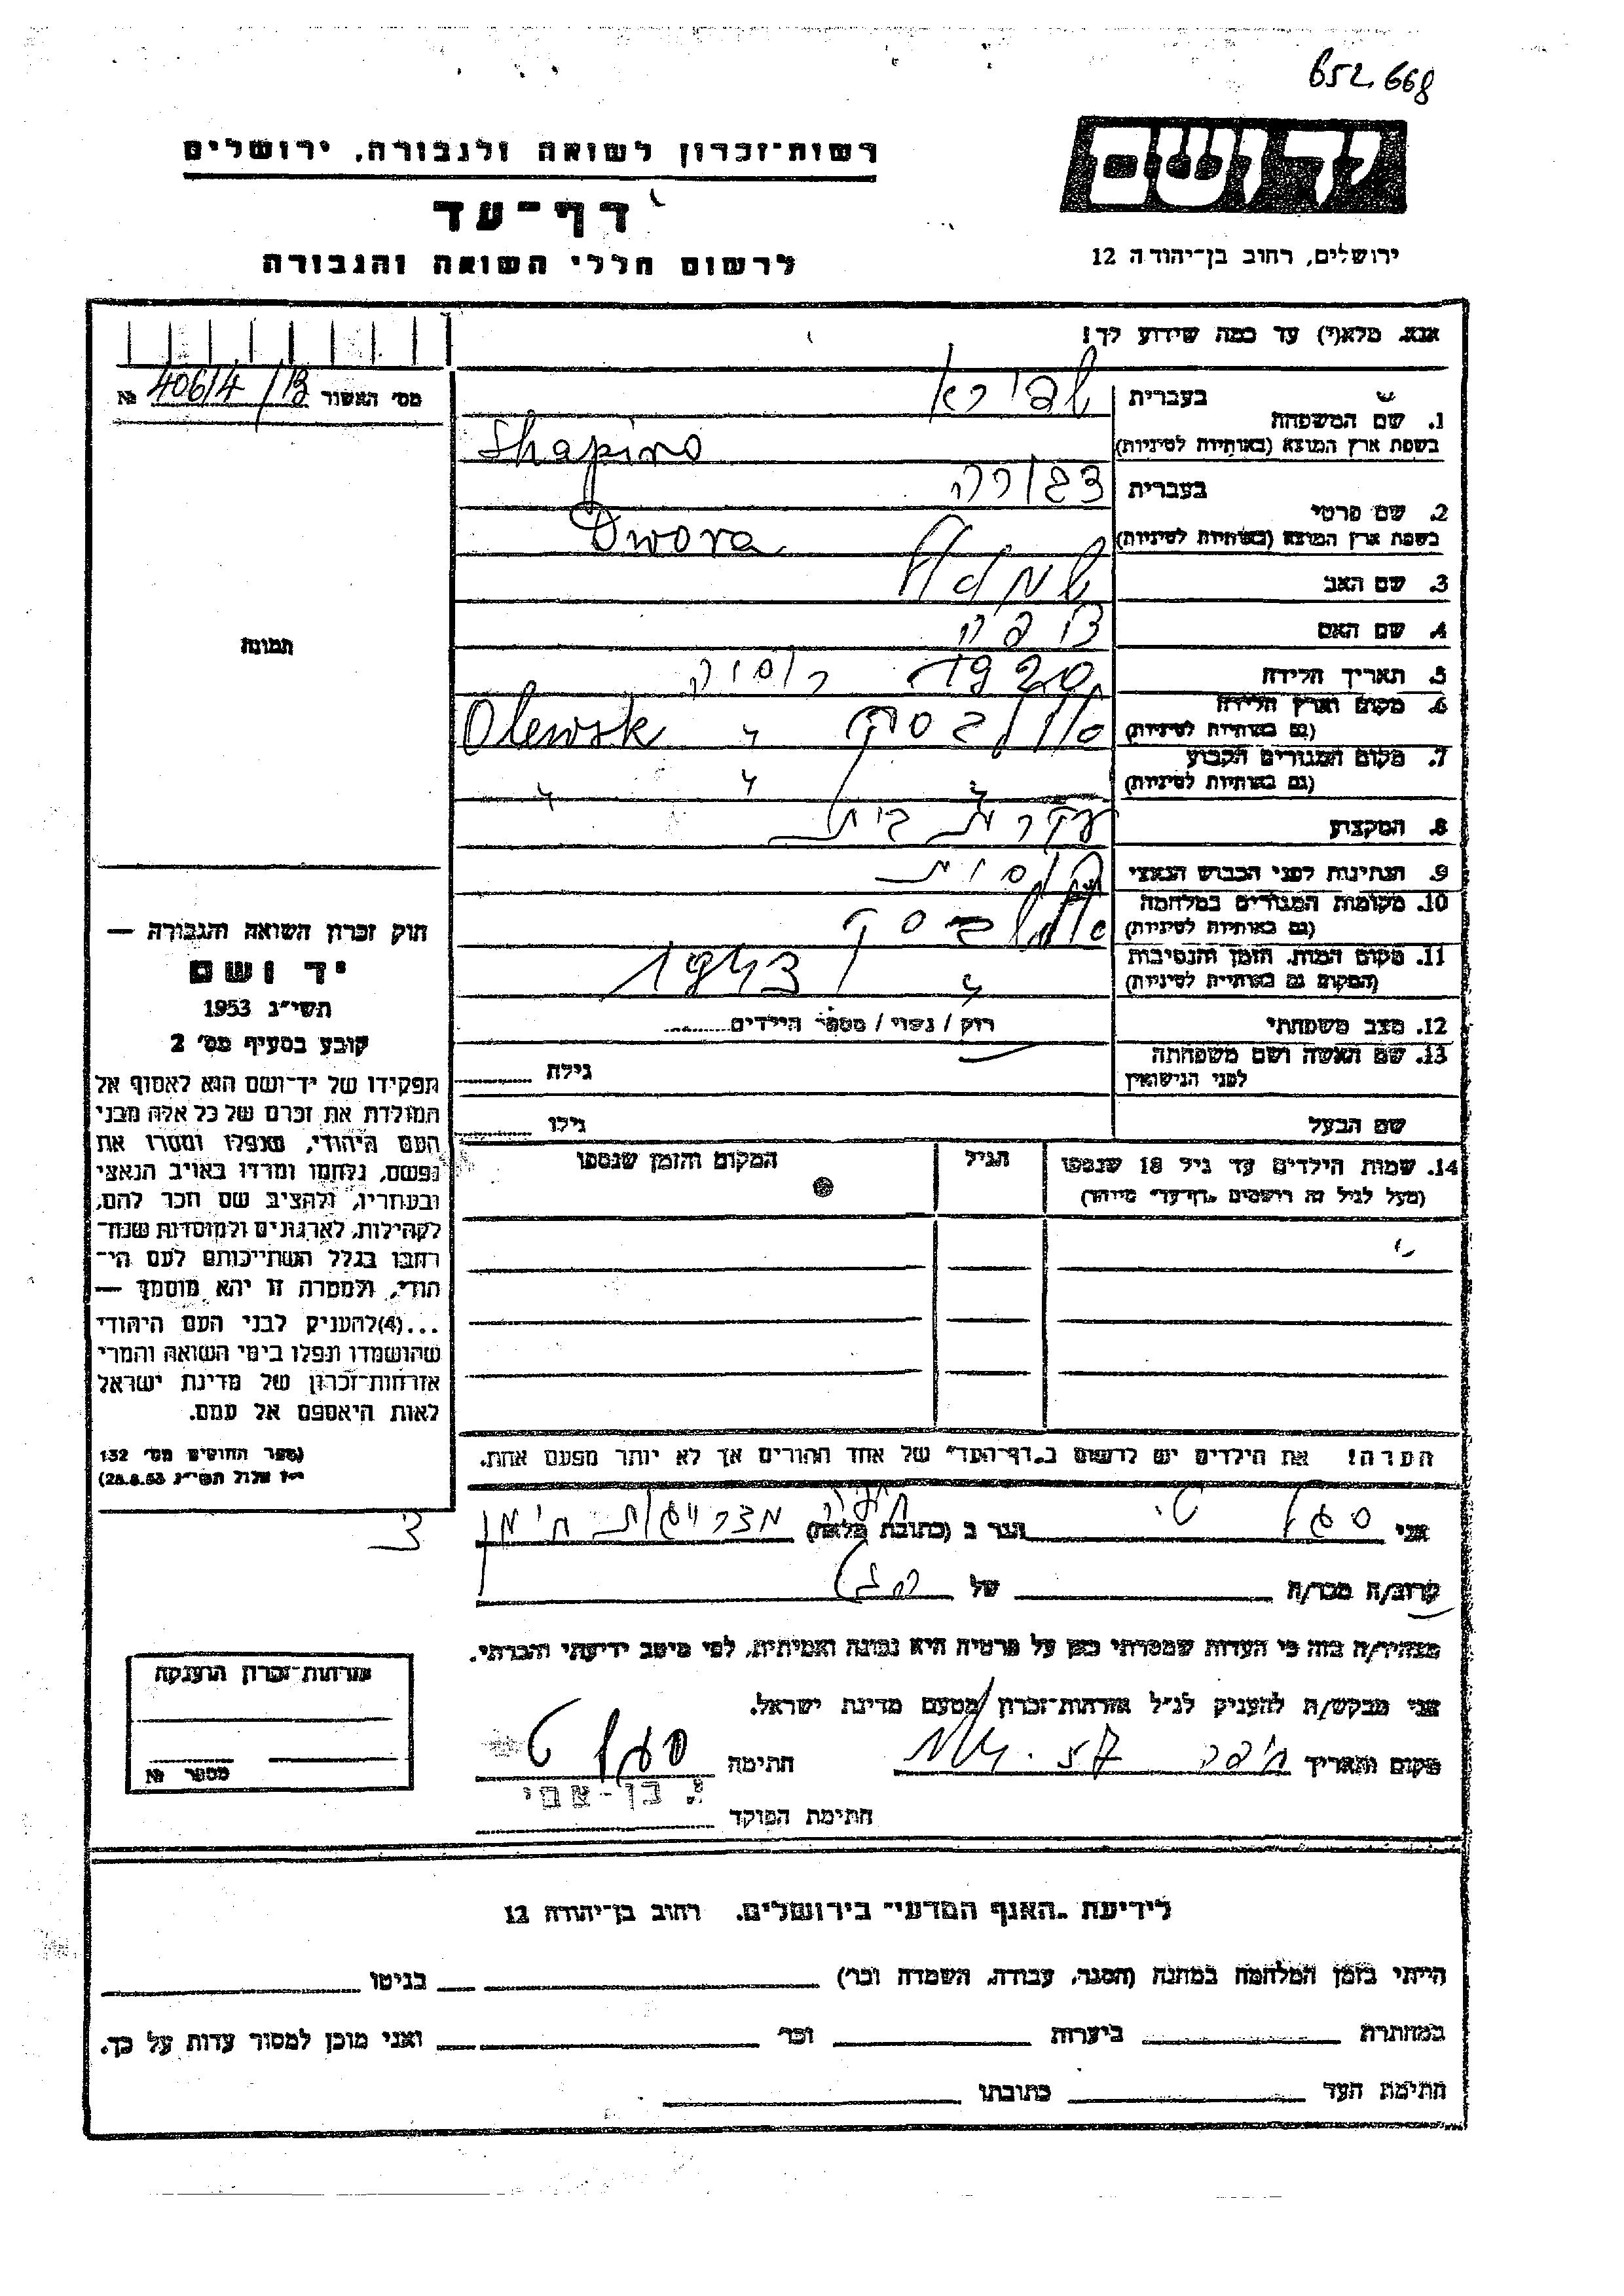 652.668
רשות-זכרון לשואה ולגבורה, ירושלים
יד ושם
דף-עד
לרשום חללי השואה והגבורה
ירושלים, רחוב בן-יהודה 12
אנא, מלא(י) עד כמה שידוע לך!
מס׳ האשור 406/4 / №
1. שם המשפחה בעברית שפירא
בשפת ארץ המוצא (באותיות לטיניות) Shapiro
2. שם פרטי בעברית דבורה
בשפת ארץ המוצא (באותיות לטיניות) Dwora
3. שם האב
4. שם האם
תמונה
5. תאריך הלידה 1920 רוסיה
6. מקום וארץ הלידה (גם באותיות לטיניות) אולבסק " Olewsk
7. מקום המגורים הקבוע (גם באותיות לטיניות) " " "
8. המקצוע עקרת בית
9. הנתינות לפני הכבוש הנאצי רוסית
10. מקומות המגורים במלחמה (גם באותיות לטיניות) אולבסק
11. מקום המות, הזמן והנסיבות (המקום גם באותיות לטיניות) " 1943
12. מצב משפחתי רוק / נשוי / מספר הילדים
13. שם האשה ושם משפחתה לפני הנישואין גילה
שם הבעל גילו
14. שמות הילדים עד גיל 18 שנספו הגיל המקום והזמן שנספו
(מעל לגיל זה רושמים "דף-עד" מיוחד)
חוק זכרון השואה והגבורה —
יד ושם
תשי״ג 1953
קובע בסעיף מס׳ 2
תפקידו של יד-ושם הוא לאסוף אל
המולדת את זכרם של כל אלה מבני
העם היהודי, שנפלו ומסרו את
נפשם, נלחמו ומרדו באויב הנאצי
ובעוזריו, ולהציב שם וזכר להם,
לקהילות, לארגונים ולמוסדות שנח-
רבו בגלל השתייכותם לעם הי-
הודי, ולמטרה זו יהא מוסמך —
...(4)להעניק לבני העם היהודי
שהושמדו ונפלו בימי השואה והמרי
אזרחות-זכרון של מדינת ישראל
לאות היאספם אל עמם.
(ספר החוקים מס׳ 132
י״ז אלול תשי״ג 28.8.53)
הערה! את הילדים יש לרשום ב"דף-העד" של אחד ההורים אך לא יותר מפעם אחת.
אני סגל הגר ב (כתובת מלאה) חיפה
קרוב/ה מכר/ה של
מצהיר/ה בזה כי העדות שמסרתי כאן על פרטיה היא נכונה ואמיתית, לפי מיטב ידיעתי והכרתי.
אני מבקש/ה להעניק לנ״ל אזרחות-זכרון מטעם מדינת ישראל.
מקום ותאריך חיפה 57 חתימה סגל
חתימת הפוקד י. בן-עמי
אזרחות-זכרון הוענקה
מספר №
לידיעת "האגף המדעי" בירושלים, רחוב בן-יהודה 12
הייתי בזמן המלחמה במחנה (הסגר, עבודה, השמדה וכר׳) בגיטו
במחתרת ביערות וכר׳ ואני מוכן למסור עדות על כך.
חתימת העד כתובתו